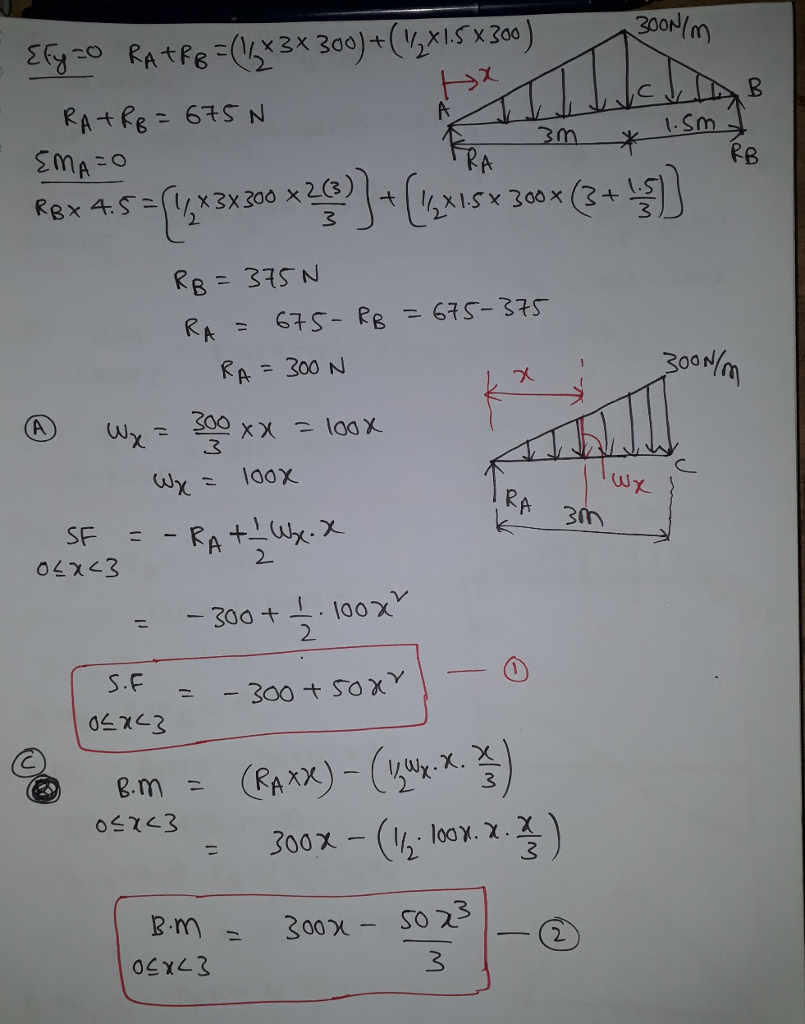 ΣFy=0 RA+RB=(1/2×3×300)+(1/2×1.5×300)
RA+RB = 675 N
ΣMA=0
RB×4.5=[1/2×3×300×2(3)/3]+[1/2×1.5×300×(3+1.5/3)]
300N/m
x
A
C
B
3m
1.5m
RA
RB
RB = 375 N
RA = 675-RB = 675-375
RA = 300 N
(A) Wx = 300/3 ×x = 100x
Wx = 100x
SF = -RA+1/2 Wx.x
0≤x<3
= -300+1/2.100x²
S.F = -300+50x² — (1)
0≤x<3
x
300N/m
Wx
C
RA
3m
(C) B.M = (RA×x)-(1/2Wx.x.x/3)
0≤x<3
= 300x-(1/2.100x.x.x/3)
B.M = 300x-50x³/3 — (2)
0≤x<3